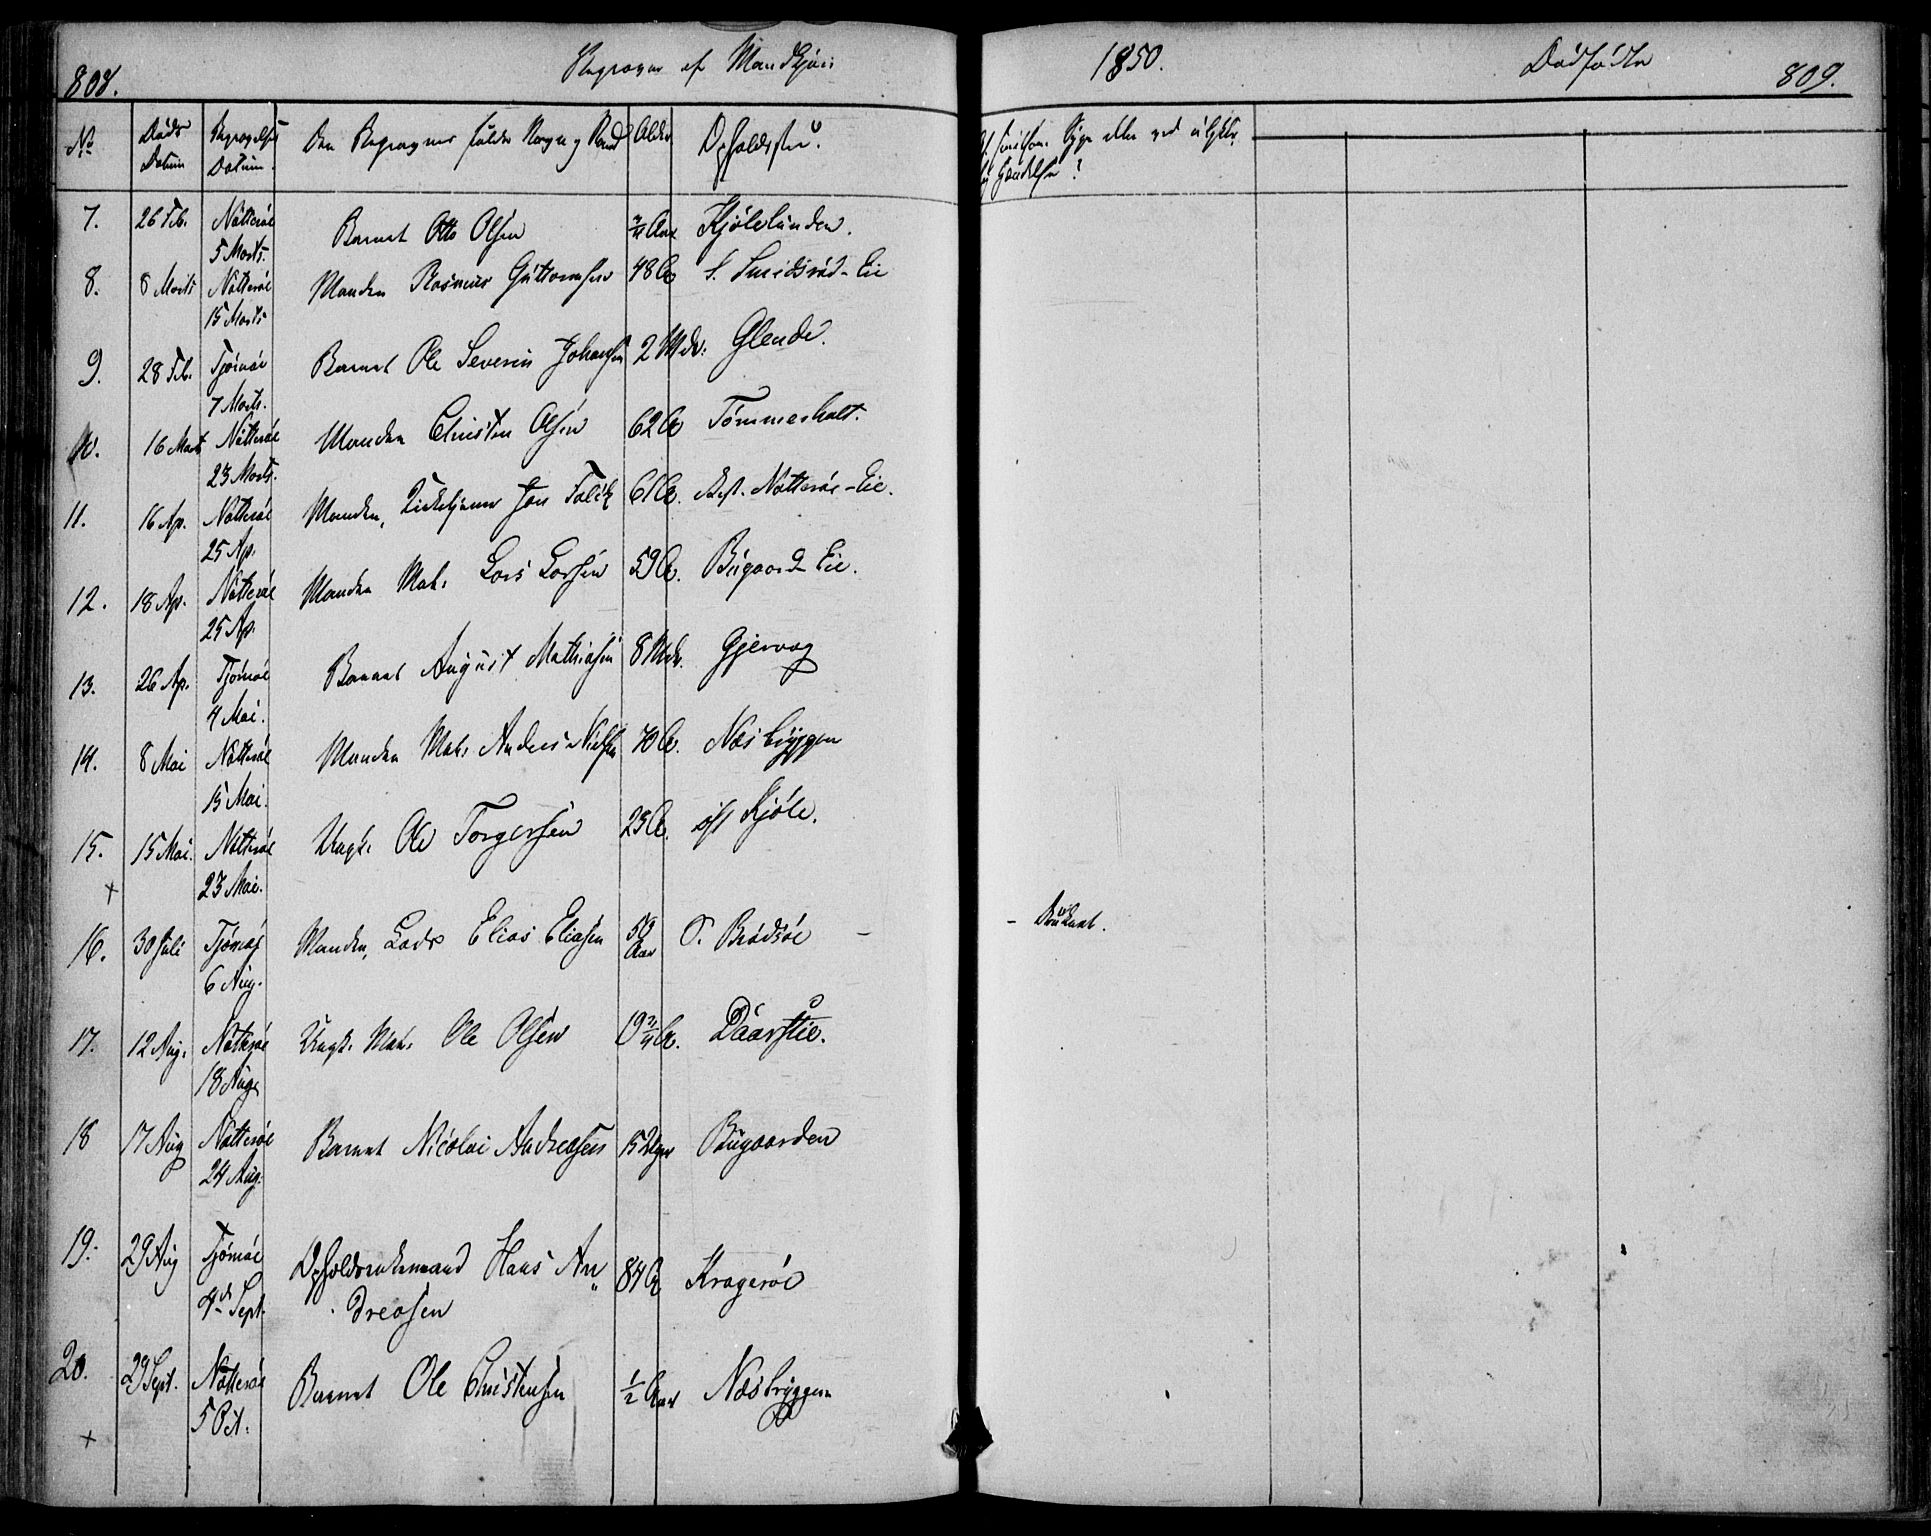 808.
Begravne af Mandkjøn
1850.
Dødfødte
809.
No
Døds Datum
Begravelses Datum.
Den Begravnes fulde Navn og Stand
Alder
Opholdssted.
7. 26 Feb. Nøtterøe 5 Marts. Barnet Otto Olsen Aar Kjølelunden.
8. 8 Marts Nøtterøe 15 Marts Manden Rasmus Guttormsen 48 A S. Smidsrød-Eie
9. 28 Feb. Tjømøe 7 Marts. Barnet Ole Severin Johansen 2 Mdr. Glende.
10. 16 Marts Nøtterøe 23 Marts. Manden Christen Olsen 62 A Tømmerholt.
11. 16 Ap. Nøtterøe 25 Ap. Manden, Jan Falck 61 A. Nøtterøe-Eie.
12. 18 Ap. Nøtterøe 25 Ap. Manden Mat. Lars Larsen 59 A. Bugaard-Eie.
13. 26 Ap. Tjømøe 4 Mai. Barnet August Mathiasen 8 Mdr. Gjervaag
14. 8 Mai Nøtterøe 15 Mai. Manden Mat. Anders Nielsen 70 A. Næsbryggen
15. 15 Mai. Nøtterøe 23 Mai. Ungk. Ole Torgersen 23 A. Kjøle.
+
16. 30 Juli Tjømøe 6 Aug. Manden, Lods Elias Eliasen 59 Aar Ø. Brødsøe – – Druknet.
17. 12 Aug. Nøtterøe 18 Aug. Ungk. Mat. Ole Olsen 19 A.
18 17 Aug Nøtterøe 24 Aug. Barnet Nicolai Andreasen 15 Bugaarden
19. 29 Aug Tjømøe 4de Sept. Opholdsenkemand Hans An„
dreasen 84 A Kragerøe
20. 29 Sept. Nøtterøe 5 Oct. Barnet Ole Christensen 1/2 Aar Næsbryggen
+